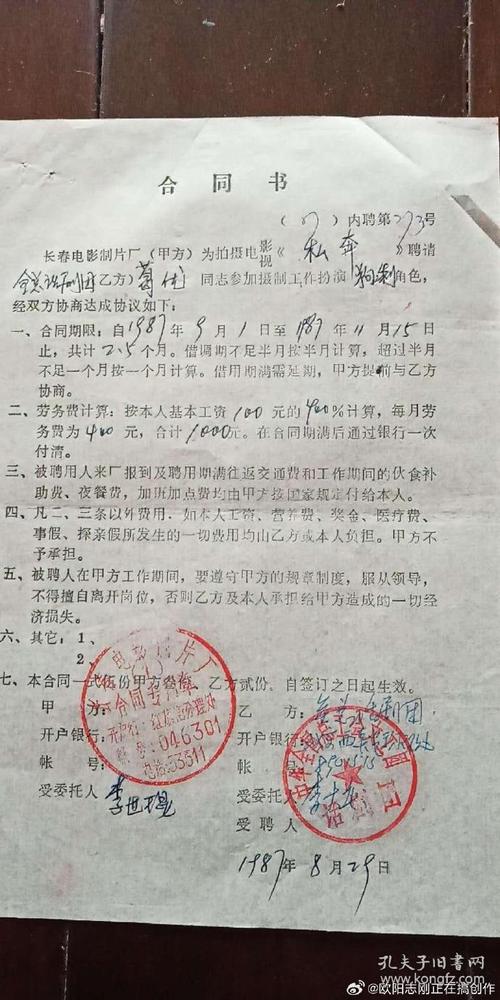 合同书
(87)内聘第273号
长春电影制片厂(甲方)为拍摄电影视《私奔》聘请
全总话剧团(乙方)葛优同志参加摄制工作扮演狗剩角色,
经双方协商达成协议如下:
一、合同期限:自1987年9月1日至1987年11月15日
止,共计2.5个月。借调期不足半月按半月计算,超过半月
不足一个月按一个月计算。借用期满需延期,甲方提前与乙方
协商。
二、劳务费计算:按本人基本工资100元的400%计算,每月劳
务费为400元,合计1000元。在合同期满后通过银行一次
付清。
三、被聘用人来厂报到及聘用期满往返交通费和工作期间的伙食补
助费、夜餐费,加班加点费均由甲方按国家规定付给本人。
四、凡二、三条以外费用,如本人工资、营养费、奖金、医疗费、
事假、探亲假所发生的一切费用均由乙方或本人负担。甲方不
予承担。
五、被聘人在甲方工作期间,要遵守甲方的规章制度,服从领导,
不得擅自离开岗位,否则乙方及本人承担给甲方造成的一切经
济损失。
六、其它:1、
2、
七、本合同一式伍份甲方叁份,乙方贰份,自签订之日起生效。
甲方: 乙方:全总话剧团
开户银行: 开户银行:
帐号: 帐号:
受委托人 李世琨 受委托人
受聘人
1987年8月29日
电影制片厂
合同专用章
046301
电话:53311
话剧团
孔夫子旧书网
@欧阳志刚正在搞创作